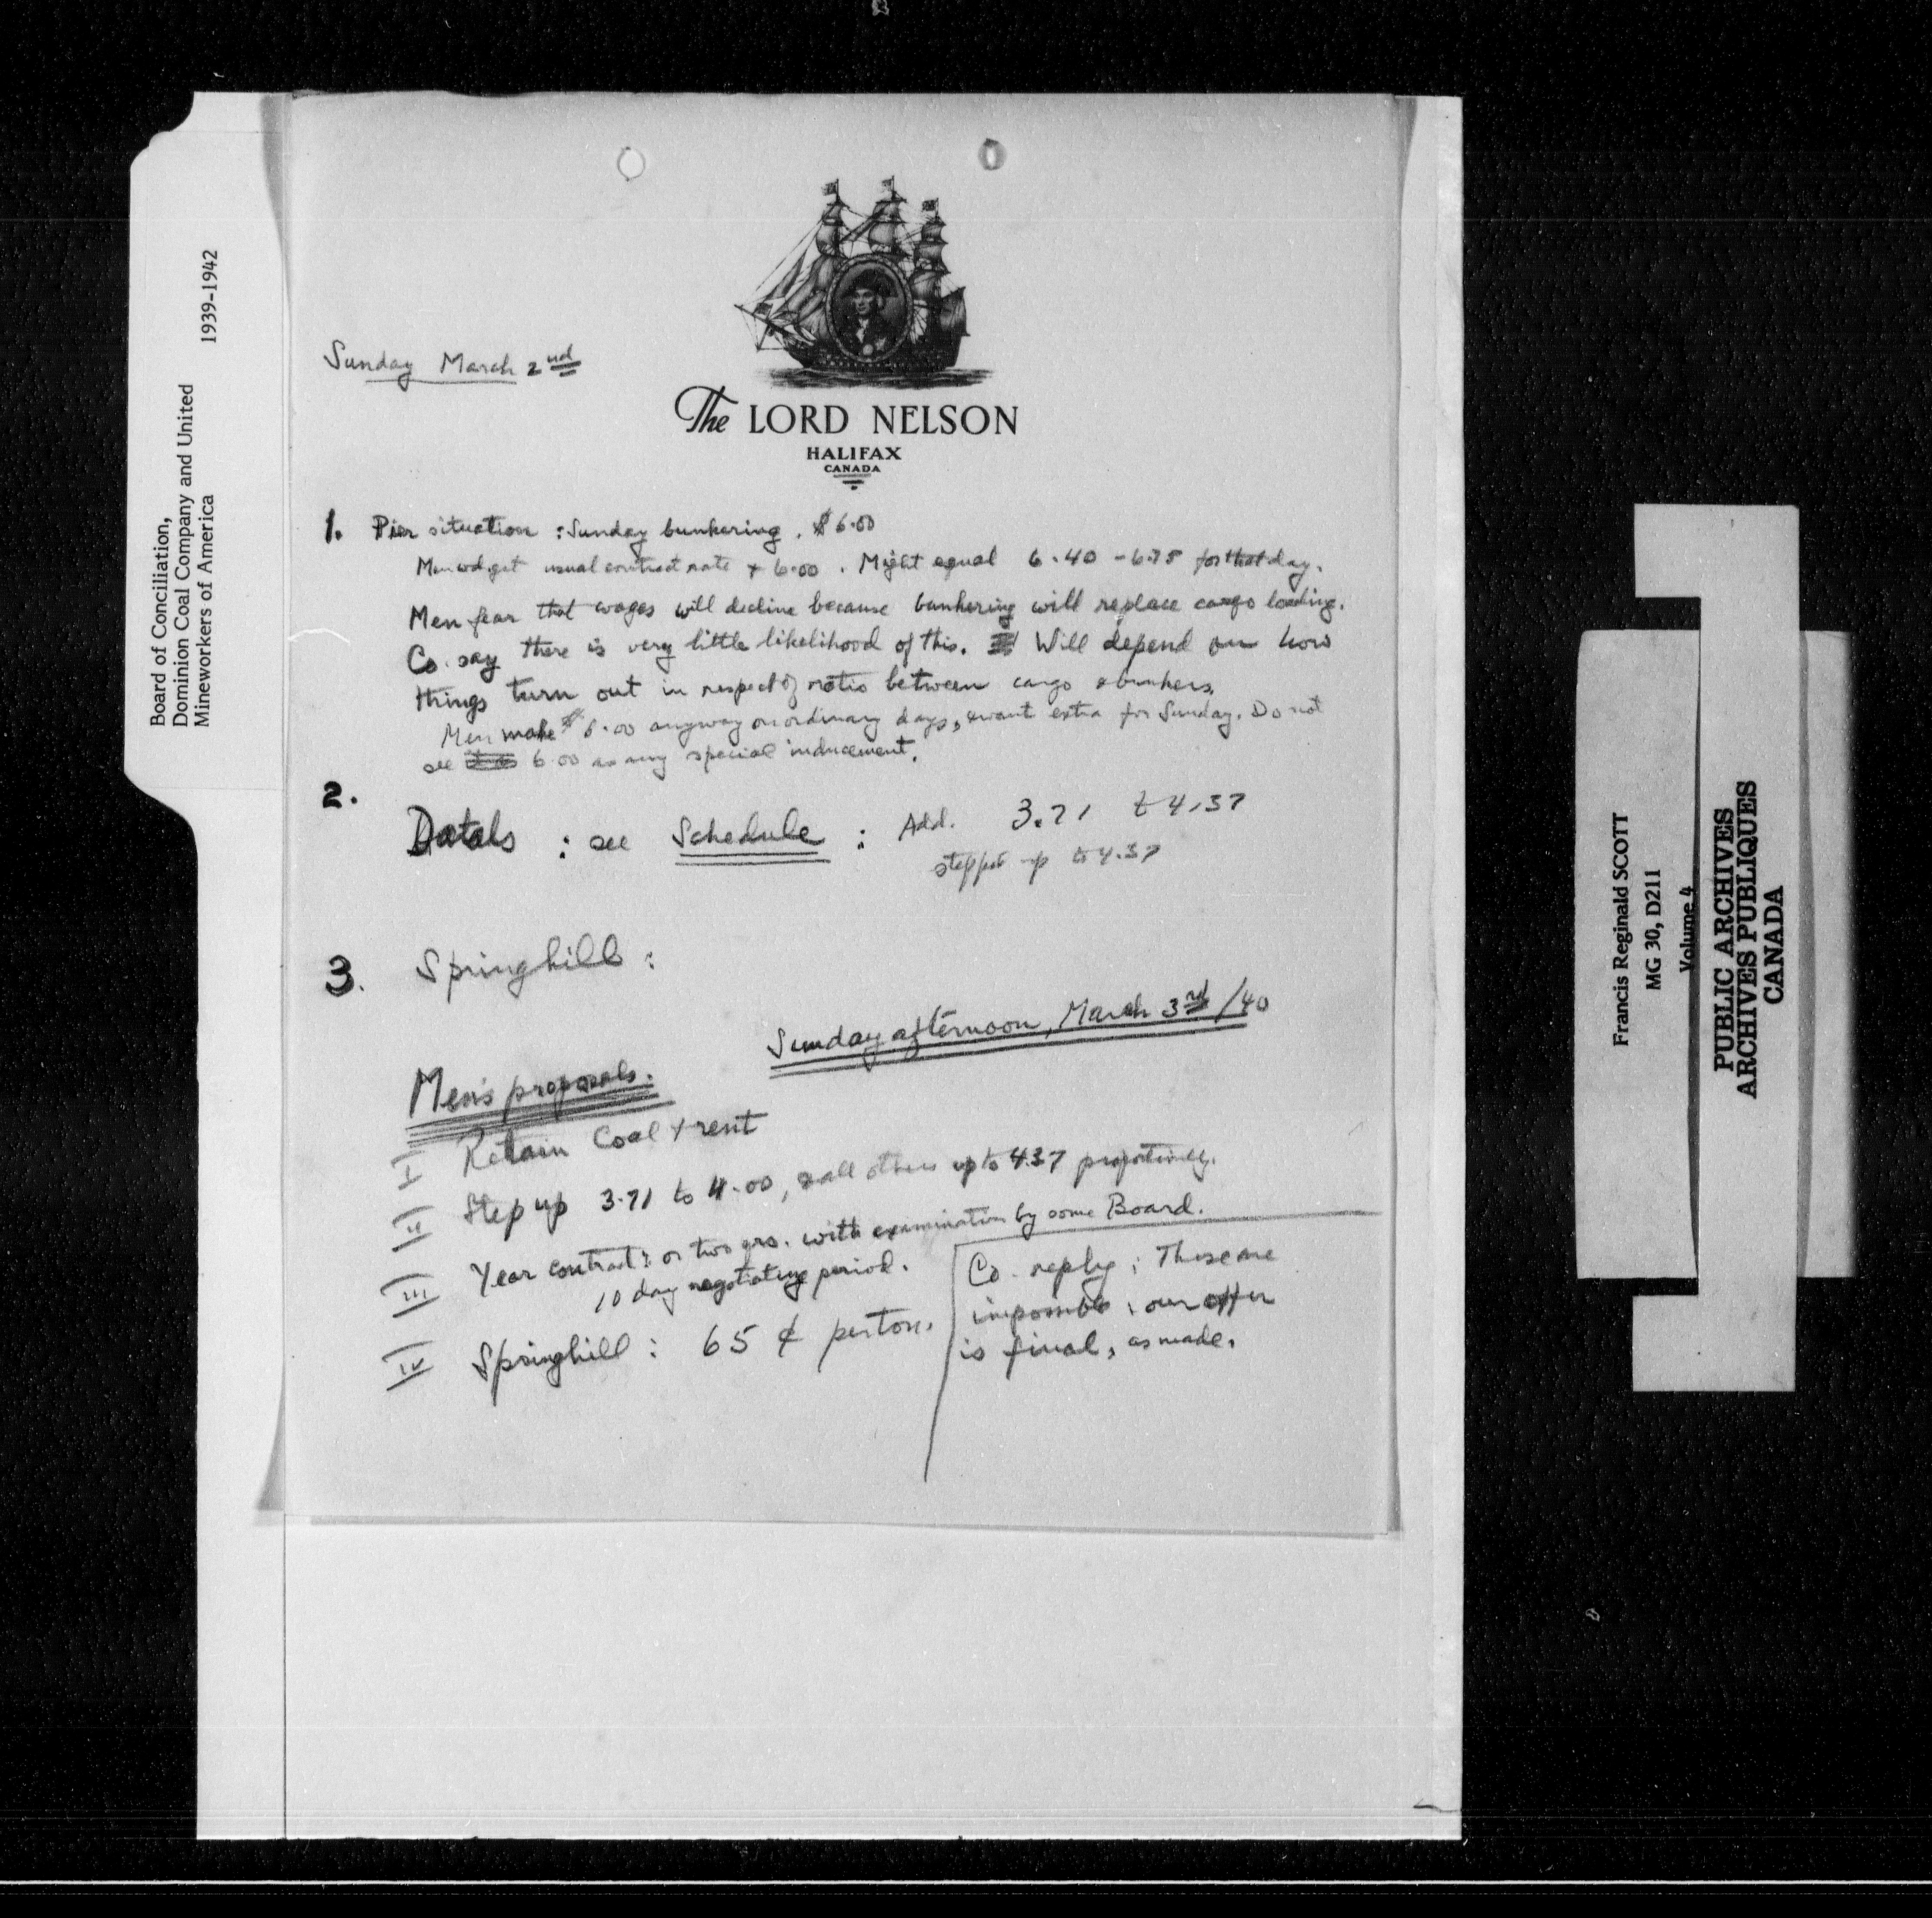 Board of Conciliation,
Dominion Coal Company and United
Mineworkers of America 1939-1942
Sunday March 2nd
The LORD NELSON
HALIFAX
CANADA
1. Pier situation : Sunday bunkering . $6.00
Men wd. get usual contract rate + 6.00 . Might equal 6.40 - 6.75 for that day.
Men fear that wages will decline because bunkering will replace cargo loading.
Co. say there is very little likelihood of this. Will depend on how
things turn out in respect of ratio between cargo & bunkers.
Men make $6.00 anyway on ordinary days, & want extra for Sunday. Do not
see 6.00 as any special inducement.
2. Datals : see Schedule : Add. 3.71 to 4.37
stepped up to 4.37
3. Springhill :
Sunday afternoon, March 3rd /40
Men's proposals.
I Retain Coal & rent
II Step up 3.71 to 4.00, & all others up to 4.37 proportionately.
III Year contract : or two yrs. with examination by some Board.
10 day negotiating period.
IV Springhill : 65 ¢ per ton.
Co. reply : These are
impossible ; our offer
is final, as made.
Francis Reginald SCOTT
MG 30, D211
Volume 4
PUBLIC ARCHIVES
ARCHIVES PUBLIQUES
CANADA